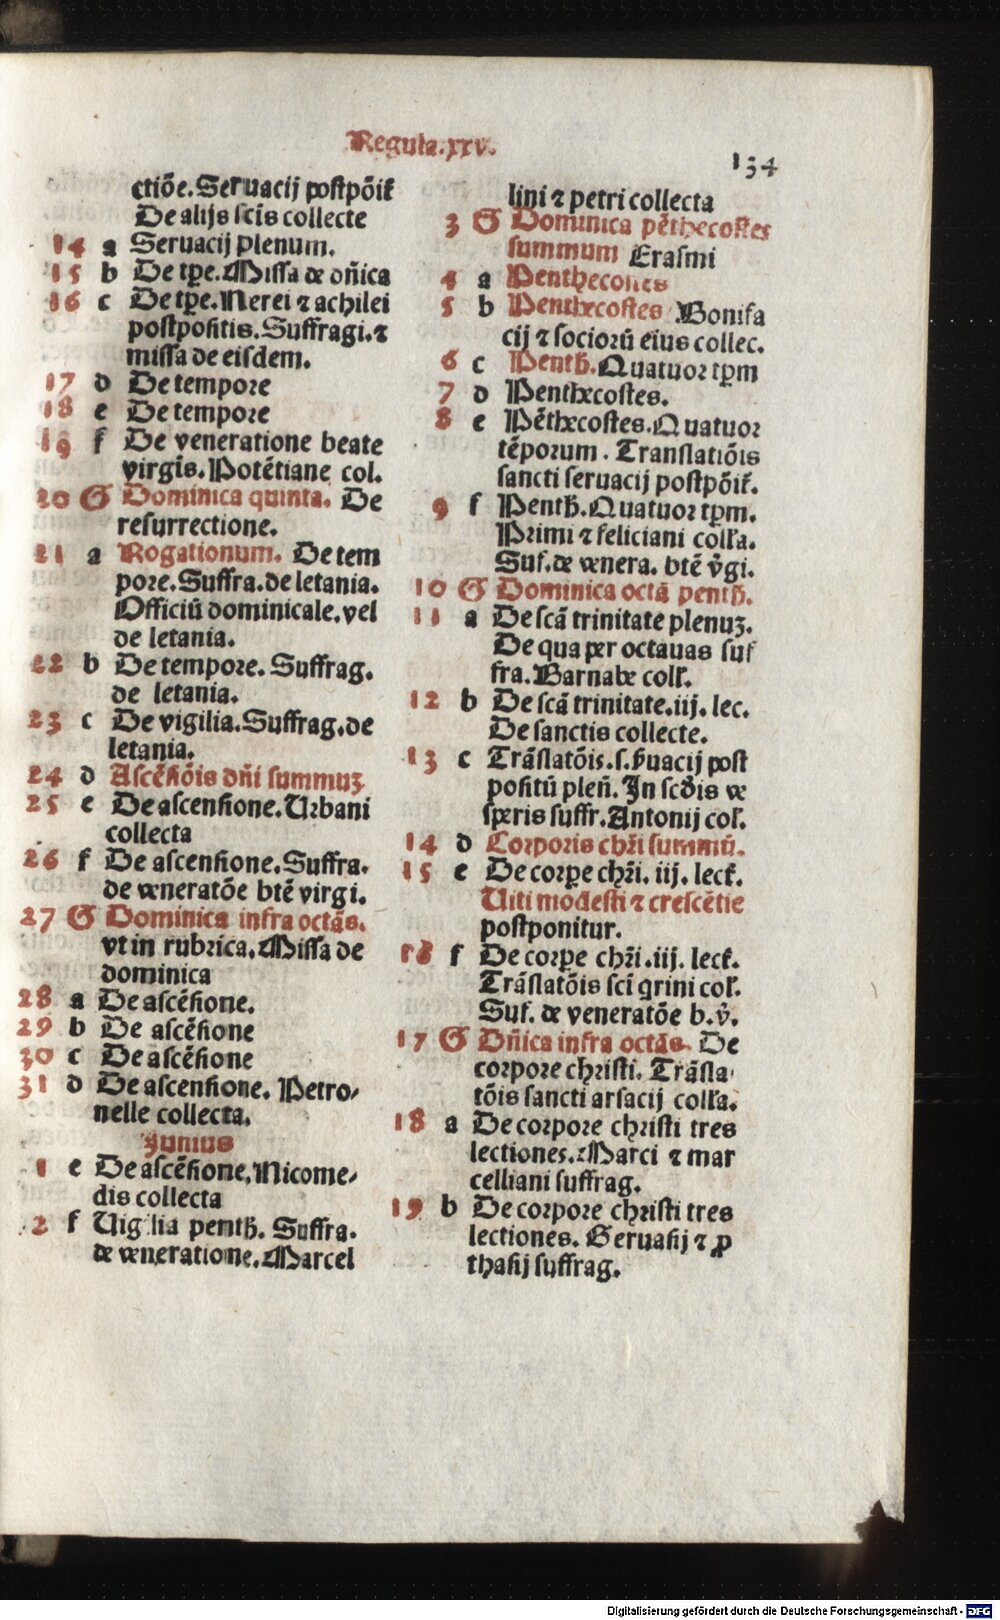 Regula.xxv.
134
ctiōe.Seruacij postpōit̄
De alijs sc̄is collecte
14 a Seruacij plenum.
15 b De tp̄e.Missa de dn̄ica
16 c De tp̄e.Nerei ⁊ achilei
postpositis.Suffragi.⁊
missa de eisdem.
17 d De tempore
18 e De tempore
19 f De veneratione beate
virgīs.Potētiane col.
20 G Dominica quinta. De
resurrectione.
21 a Rogationum. De tem
pore.Suffra.de letania.
Officiū dominicale.vel
de letania.
22 b De tempore. Suffrag.
de letania.
23 c De vigilia.Suffrag.de
letania.
24 d Ascēsiōis dn̄i summuꝫ
25 e De ascensione.Urbani
collecta
26 f De ascensione.Suffra.
de veneratōe btē virgi.
27 G Dominica infra octās.
vt in rubrica.Missa de
dominica
28 a De ascēsione.
29 b De ascēsione
30 c De ascēsione
31 d De ascensione. Petro-
nelle collecta.
Junius
1 e De ascēsione.Nicome-
dis collecta
2 f Uigilia penth̄. Suffra.
de veneratione.Marcel
lini ⁊ petri collecta
3 G Dominica pēthecostes
summum Erasmi
4 a Penthecostes
5 b Penthecostes Bonifa
cij ⁊ socioꝝ eius collec.
6 c Penth̄.Quatuor tp̄m
7 d Penthecostes.
8 e Pēthecostes.Quatuor
tēporum. Translatiōis
sancti seruacij postpōit̄.
9 f Penth̄.Quatuor tp̄m.
Primi ⁊ feliciani coll̄a.
Suf.de venera. btē v̄gi.
10 G Dominica octā penth̄.
11 a De scā trinitate plenuꝫ.
De qua per octauas suf
fra.Barnabe coll̄.
12 b De scā trinitate.iij. lec.
De sanctis collecte.
13 c Trāslatōis.s.s̄uacij post
positū plen̄. In scd̄is ve
speris suffr.Antonij col̄.
14 d Corporis chr̄i summū.
15 e De corpe chr̄i. iij. lect̄.
Uiti modesti ⁊ crescētie
postponitur.
16 f De corpe chr̄i.iij. lect̄.
Trāslatōis sci̅ qrini col̄.
Suf. de veneratōe b.v̄.
17 G Dn̄ica infra octās. De
corpore christi. Trāsla-
tōis sancti arsacij coll̄a.
18 a De corpore christi tres
lectiones.Marci ⁊ mar
celliani suffrag.
19 b De corpore christi tres
lectiones. Geruasij ⁊ ꝓ
thasij suffrag.
Digitalisierung gefördert durch die Deutsche Forschungsgemeinschaft - DFG